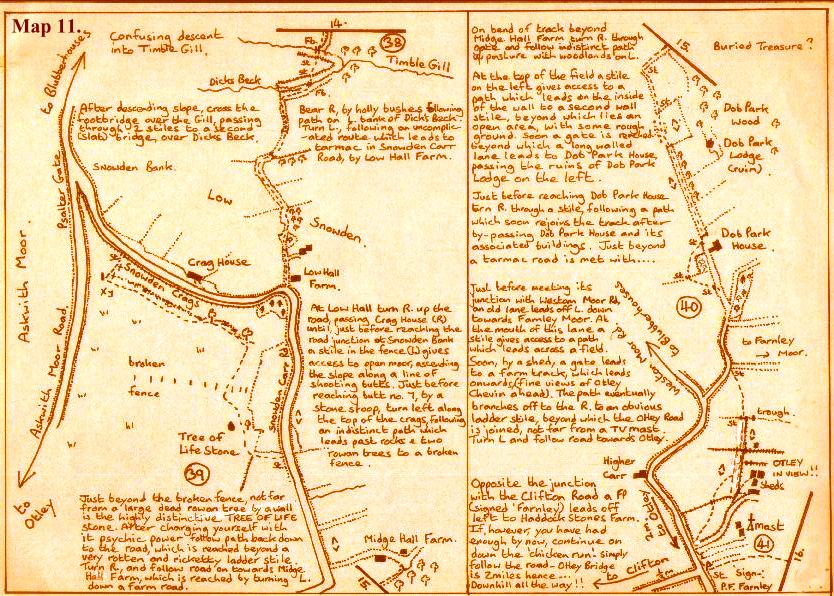 Map 11.
Confusing descent
into Timble Gill.
to Blubberhouses
14.
38
Fb.
St
Timble Gill
Fb.
Dicks Beck
After descending slope, cross the
footbridge over the Gill, passing
through 2 stiles to a second
(slab) bridge, over Dicks Beck.
Bear R, by holly bushes following
path on L bank of Dicks Beck.
Turn L, following an uncomplic-
-ated route which leads to
tarmac in Snowden Carr
Road, by Low Hall Farm.
Snowden Bank.
Psalter Gate
Low
Snowden.
Askwith Moor.
Crag House
Low Hall
Farm.
St
Snowden Crags
Askwith Moor Road.
broken
fence
Snowden Carr Rd
Tree of
Life Stone
St
39
to
Otley
At Low Hall turn R. up the
road, passing Crag House (R)
until, just before reaching the
road junction at Snowden Bank
a stile in the fence (L) gives
access to open moor, ascending
the slope along a line of
shooting butts. Just before
reaching butt no. 7, by a
stone stoop, turn left along
the top of the crags, following
an indistinct path which
leads past rocks & two
rowan trees to a broken
fence.
Just beyond the broken fence, not far
from a large dead rowan tree by a wall
is the highly distinctive TREE OF LIFE
stone. After charging yourself with
its psychic power follow path back down
to the road, which is reached beyond a
very rotten and ricketty ladder stile.
Turn R. and follow road on towards Midge
Hall Farm, which is reached by turning L.
down a farm road.
Midge Hall Farm.
15.
On bend of track beyond
Midge Hall Farm turn R. through
gate and follow indistinct path
up pasture with woodland on L.
At the top of the field a stile
on the left gives access to a
path which leads on the inside
of the wall to a second wall
stile, beyond which lies an
open area, with some rough
ground. Soon a gate is reached
beyond which a long walled
lane leads to Dob Park House,
passing the ruins of Dob Park
Lodge on the left.
Just before reaching Dob Park House
turn R. through a stile, following a path
which soon rejoins the track after
by-passing Dob Park House and its
associated buildings. Just beyond
a tarmac road is met with....
Just before meeting its
junction with Weston Moor Rd,
an old lane leads off L. down
towards Farnley Moor. At
the mouth of this lane a
stile gives access to a path
which leads across a field.
Soon, by a shed, a gate leads
to a farm track, which leads
onwards (fine views of Otley
Chevin ahead). The path eventually
branches off to the R. to an obvious
ladder stile, beyond which the Otley Road
is joined, not far from a TV mast.
Turn L and follow road towards Otley.
Opposite the junction
with the Clifton Road a FP
(signed 'Farnley) leads off
left to Haddock Stones Farm.
If, however, you have had
enough by now, continue on
down the 'chicken run'. Simply
follow the road - Otley Bridge
is 2 miles hence...
Downhill all the way!!
15.
Buried Treasure?
St
Dob Park
Wood
Dob Park
Lodge
(ruin)
St
Dob Park
House
St
40
to Blubberhouses
Weston Moor Rd
to Farnley
Moor.
trough.
OTLEY
IN VIEW!!
sheds
Higher
Carr
to Otley
mast
41
16.
to Clifton
St. Sign:-
P.F. Farnley